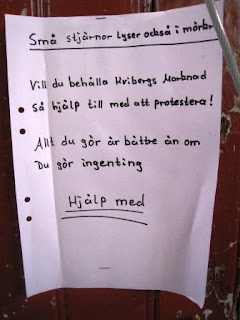 Små stjärnor lyser också i mörkr
Vill du behålla Kvibergs Marknad
Så hjälp till med att protestera!
Allt du gör är bättre än om
Du gör ingenting
Hjälp med